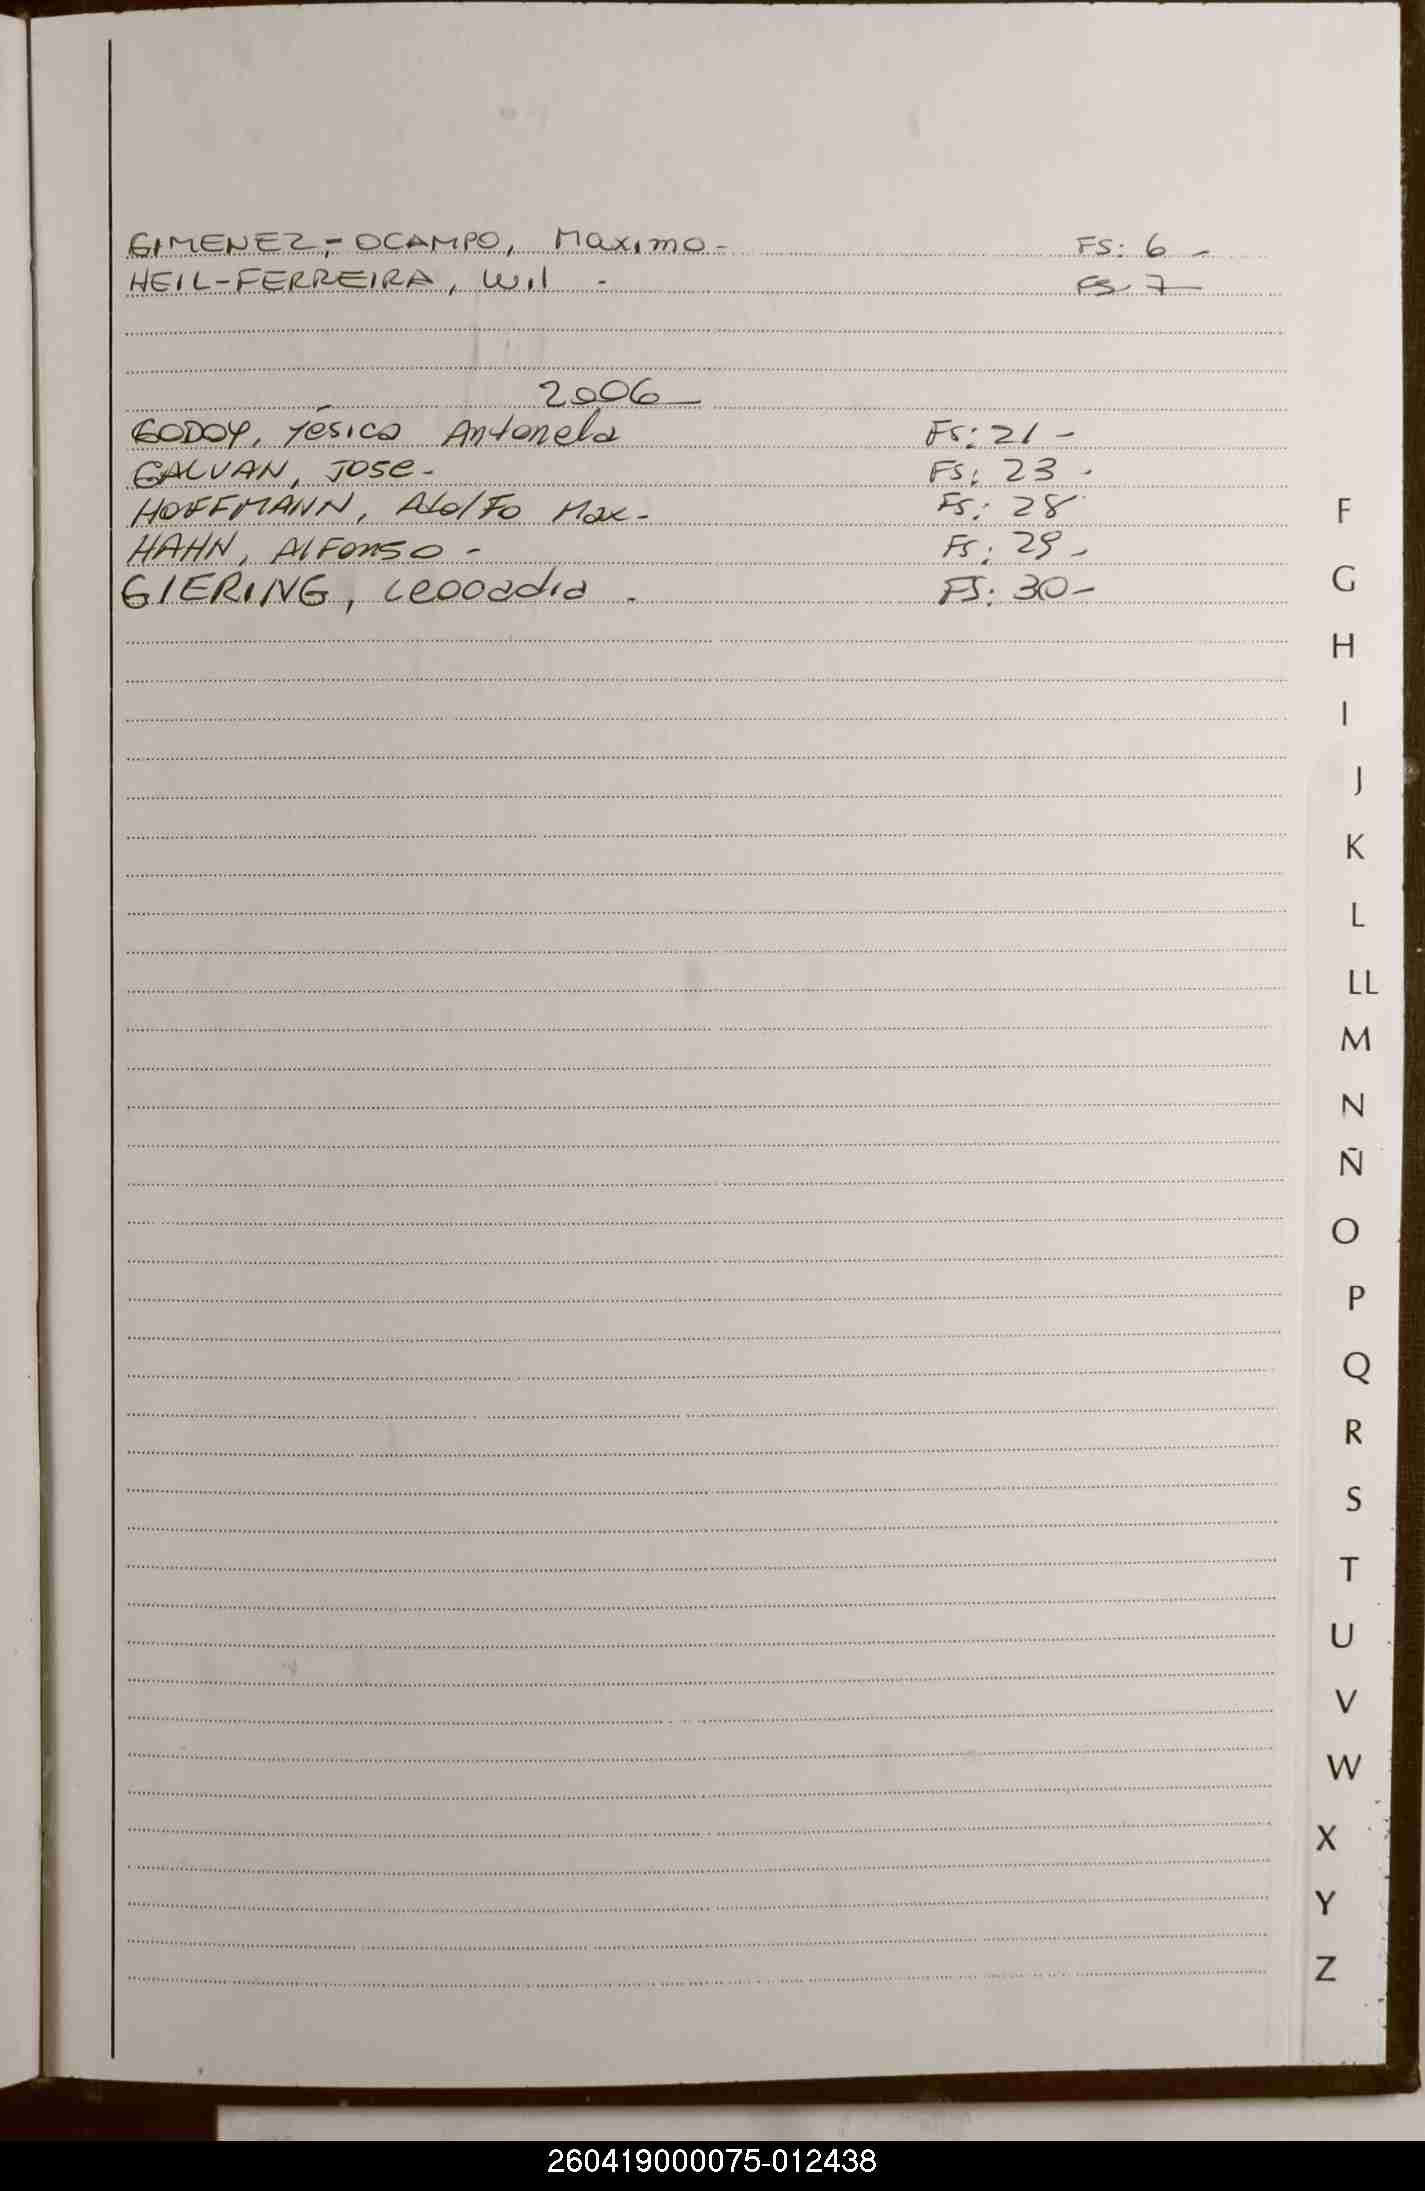 GIMENEZ,- OCAMPO, Maximo- FS: 6 -
HEIL-FERREIRA, Wil - FS. 7
2006
GODOY, Yésica Antonela FS: 21 -
GALVAN, JOSe- FS: 23 -
HOFFMANN, AdolFo Max- FS: 28
HAHN, AlFonso - FS: 29 -
GIERING, Leocadia . FS: 30 -
F
G
H
I
J
K
L
LL
M
N
Ñ
O
P
Q
R
S
T
U
V
W
X
Y
Z
260419000075-012438